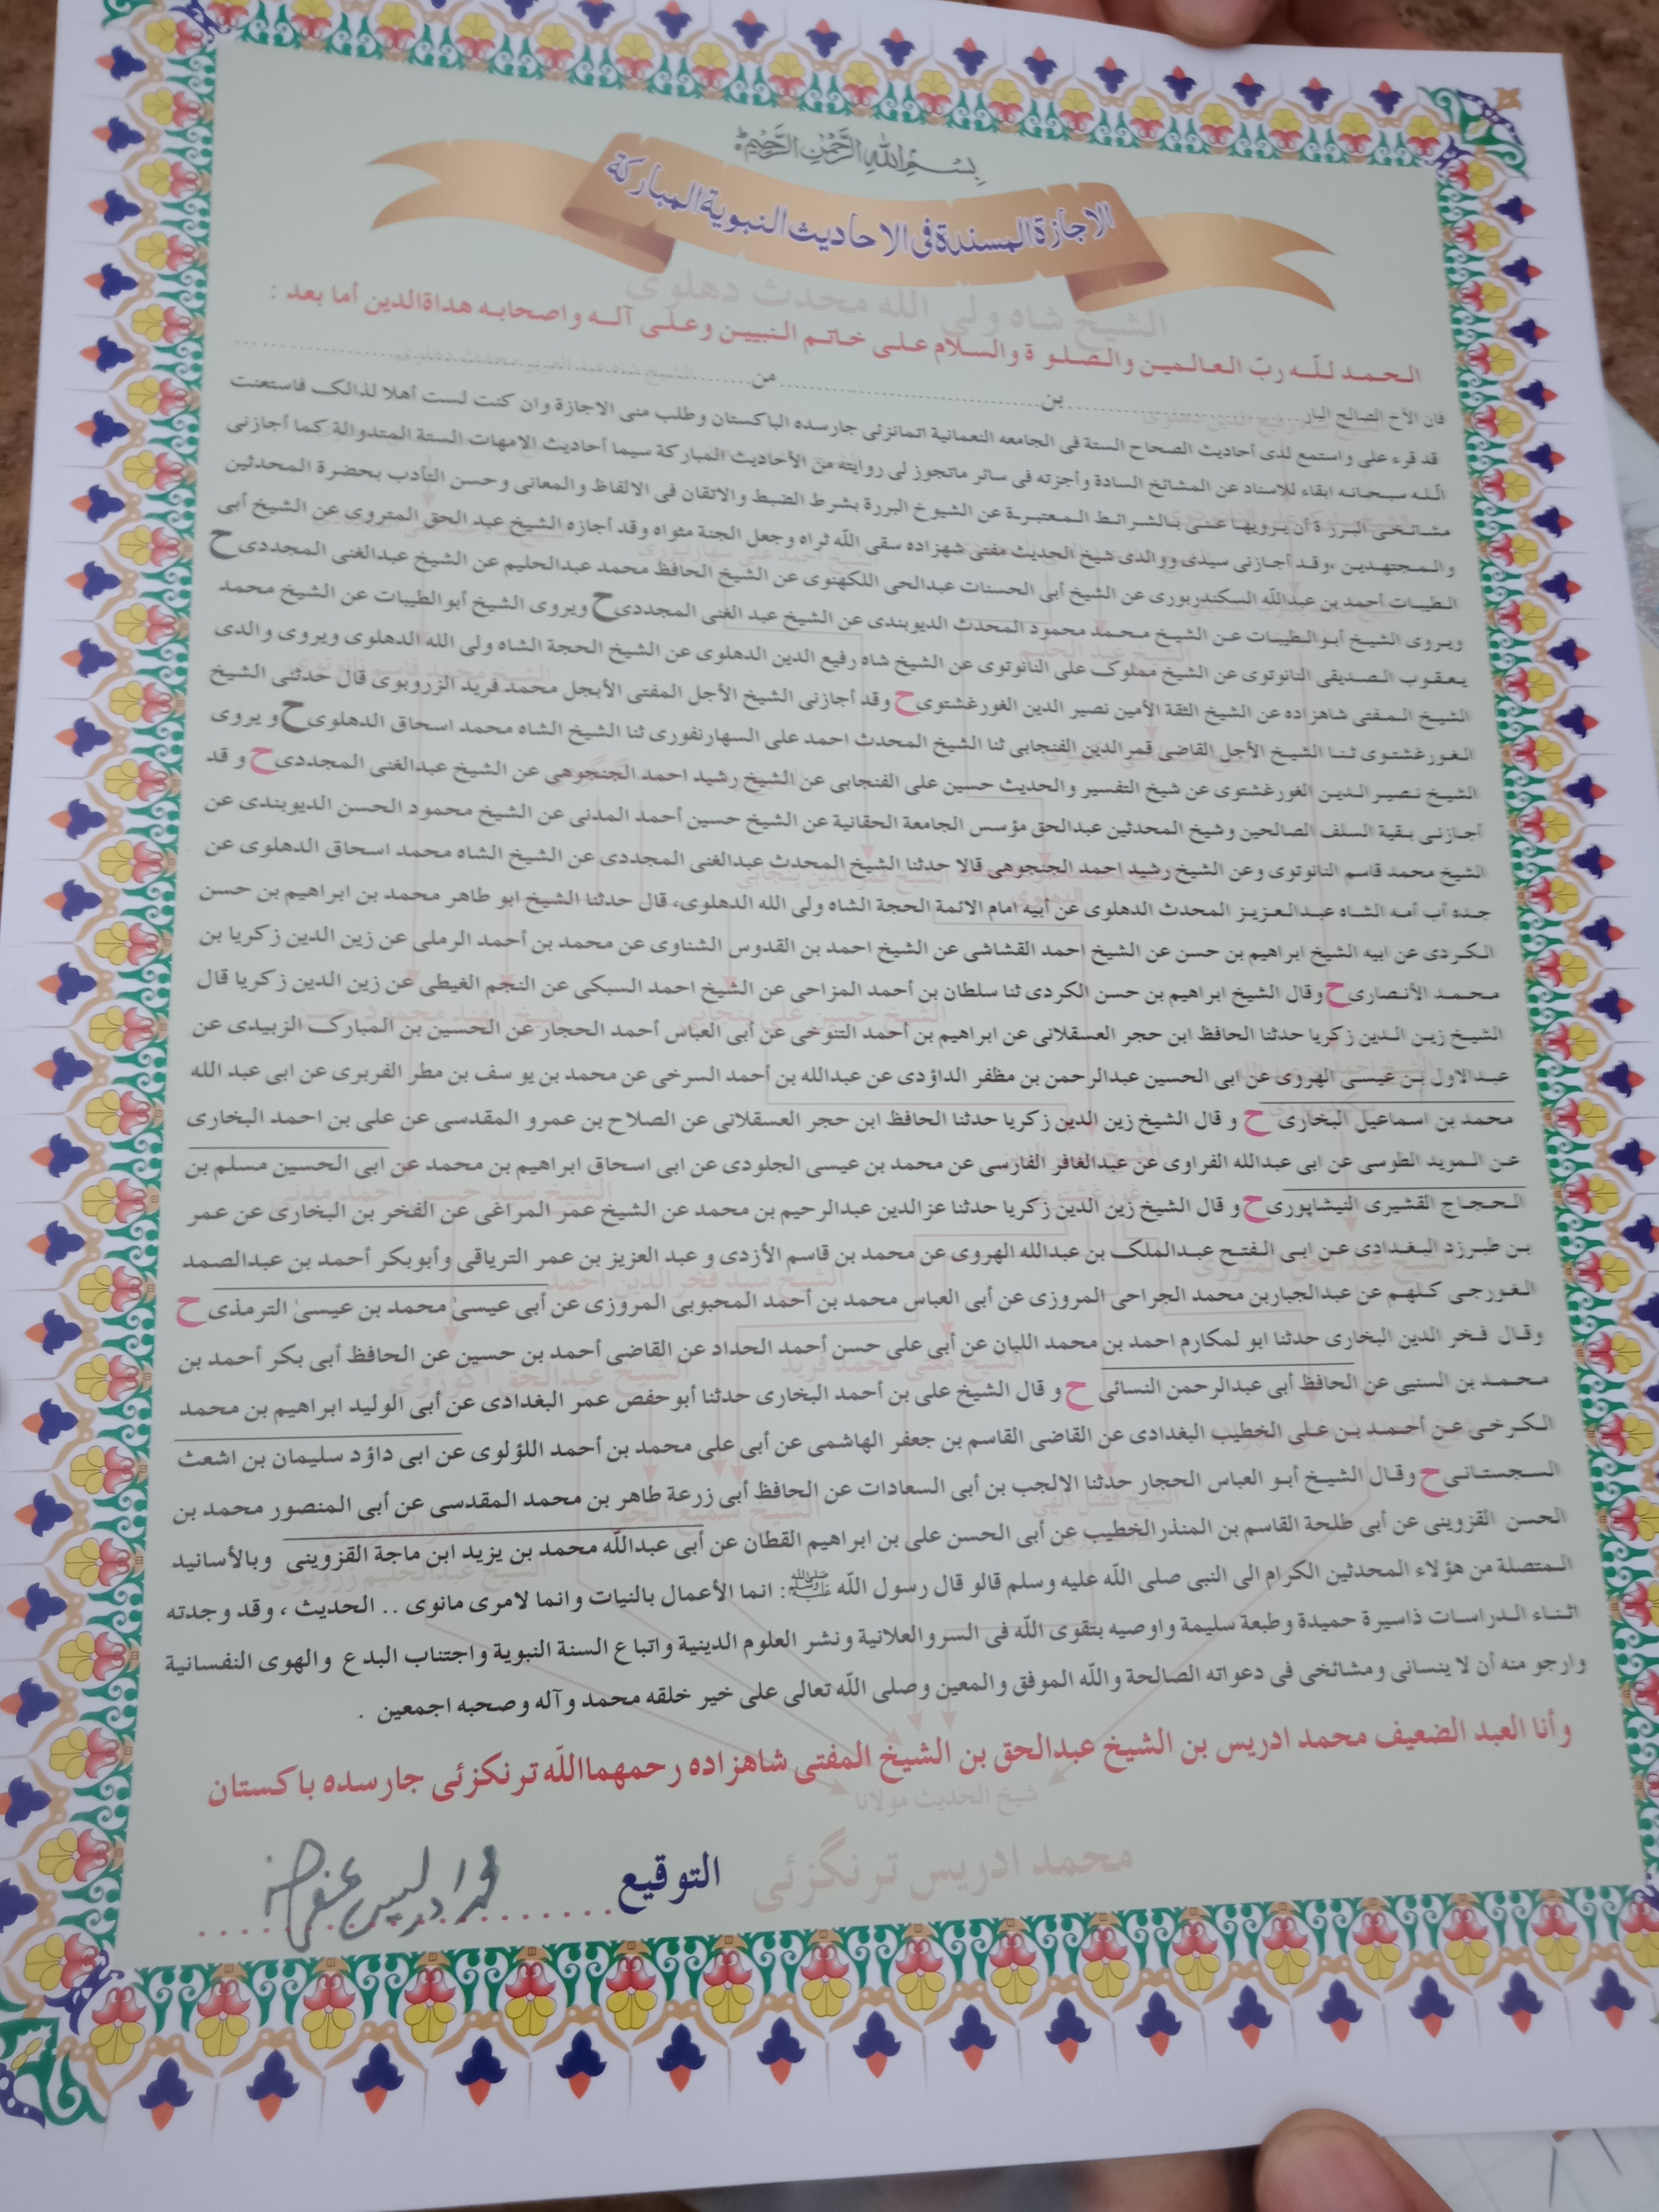 بسم الله الرحمن الرحيم
الاجازة المسندة فی الاحادیث النبویة المبارکة
الشیخ شاه ولی الله محدث دهلوی
الحمد للّٰه ربّ العالمین والصلوة والسلام علی خاتم النبیین وعلی آله واصحابه هداة الدین أما بعد :
فان الأخ الصالح البار.................... بن .................... من ....................
قد قرء علی واستمع لدی أحادیث الصحاح الستة فی الجامعه النعمانیة اتمانزئی جارسده الباکستان وطلب منی الاجازة وان کنت لست أهلا لذالک فاستعنت
اللّٰه سبحانه ابقاء للاسناد عن المشائخ السادة وأجزته فی سائر ماتجوز لی روایته من الأحادیث المبارکة سیما أحادیث الامهات الستة المتدوالة کما أجازنی
مشائخی البررة أن یرویها عنی بالشرائط المعتبرة عن الشیوخ البررة بشرط الضبط والاتقان فی الالفاظ والمعانی وحسن التأدب بحضرة المحدثین
والمجتهدین ،وقد أجازنی سیدی ووالدی شیخ الحدیث مفتی شهزاده سقی اللّٰه ثراه وجعل الجنة مثواه وقد أجازه الشیخ عبد الحق المتروی عن الشیخ أبی
الطیبات أحمد بن عبداللّٰه السکندرپوری عن الشیخ أبی الحسنات عبدالحی اللکهنوی عن الشیخ الحافظ محمد عبدالحلیم عن الشیخ عبدالغنی المجددی ح
ویروی الشیخ أبوالطیبات عن الشیخ محمد محمود المحدث الدیوبندی عن الشیخ عبد الغنی المجددی ح ویروی الشیخ أبوالطیبات عن الشیخ محمد
یعقوب الصدیقی النانوتوی عن الشیخ مملوک علی النانوتوی عن الشیخ شاه رفیع الدین الدهلوی عن الشیخ الحجة الشاه ولی الله الدهلوی ویروی والدی
الشیخ المفتی شاهزاده عن الشیخ الثقة الأمین نصیر الدین الغورغشتوی ح وقد أجازنی الشیخ الأجل المفتی الأبجل محمد فرید الزروبوی قال حدثنی الشیخ
الغورغشتوی ثنا الشیخ الأجل القاضی قمر الدین الفنجابی ثنا الشیخ المحدث احمد علی السهارنفوری ثنا الشیخ الشاه محمد اسحاق الدهلوی ح و یروی
الشیخ نصیر الدین الغورغشتوی عن شیخ التفسیر والحدیث حسین علی الفنجابی عن الشیخ رشید احمد الجنجوهی عن الشیخ عبدالغنی المجددی ح و قد
أجازنی بقیة السلف الصالحین وشیخ المحدثین عبدالحق مؤسس الجامعة الحقانیة عن الشیخ حسین أحمد المدنی عن الشیخ محمود الحسن الدیوبندی عن
الشیخ محمد قاسم النانوتوی وعن الشیخ رشید احمد الجنجوهی قالا حدثنا الشیخ المحدث عبدالغنی المجددی عن الشیخ الشاه محمد اسحاق الدهلوی عن
جده أب أمه الشاه عبدالعزیز المحدث الدهلوی عن أبیه امام الائمة الحجة الشاه ولی الله الدهلوی، قال حدثنا الشیخ ابو طاهر محمد بن ابراهیم بن حسن
الکردی عن ابیه الشیخ ابراهیم بن حسن عن الشیخ احمد القشاشی عن الشیخ احمد بن القدوس الشناوی عن محمد بن أحمد الرملی عن زین الدین زکریا بن
محمد الأنصاری ح وقال الشیخ ابراهیم بن حسن الکردی ثنا سلطان بن أحمد المزاحی عن الشیخ احمد السبکی عن النجم الغیطی عن زین الدین زکریا قال
الشیخ زین الدین زکریا حدثنا الحافظ ابن حجر العسقلانی عن ابراهیم بن أحمد التنوخی عن أبی العباس أحمد الحجار عن الحسین بن المبارک الزبیدی عن
عبدالاول بن عیسی الهروی عن ابی الحسین عبدالرحمن بن مظفر الداؤدی عن عبدالله بن أحمد السرخی عن محمد بن یو سف بن مطر الفربری عن ابی عبد الله
محمد بن اسماعیل البخاری ح و قال الشیخ زین الدین زکریا حدثنا الحافظ ابن حجر العسقلانی عن الصلاح بن عمرو المقدسی عن علی بن احمد البخاری
عن الموید الطوسی عن ابی عبدالله الفراوی عن عبدالغافر الفارسی عن محمد بن عیسی الجلودی عن ابی اسحاق ابراهیم بن محمد عن ابی الحسین مسلم بن
الحجاج القشیری النیشاپوری ح و قال الشیخ زین الدین زکریا حدثنا عزالدین عبدالرحیم بن محمد عن الشیخ عمر المراغی عن الفخر بن البخاری عن عمر
بن طبرزد البغدادی عن ابی الفتح عبدالملک بن عبدالله الهروی عن محمد بن قاسم الأزدی و عبد العزیز بن عمر التریاقی وأبوبکر أحمد بن عبدالصمد
الغورجی کلهم عن عبدالجباربن محمد الجراحی المروزی عن أبی العباس محمد بن أحمد المحبوبی المروزی عن أبی عیسیٰ محمد بن عیسیٰ الترمذی ح
وقال فخر الدین البخاری حدثنا ابو لمکارم احمد بن محمد اللبان عن أبی علی حسن أحمد الحداد عن القاضی أحمد بن حسین عن الحافظ أبی بکر أحمد بن
محمد بن السنیی عن الحافظ أبی عبدالرحمن النسائی ح و قال الشیخ علی بن أحمد البخاری حدثنا أبوحفص عمر البغدادی عن أبی الولید ابراهیم بن محمد
الکرخی عن أحمد بن علی الخطیب البغدادی عن القاضی القاسم بن جعفر الهاشمی عن أبی علی محمد بن أحمد اللؤلوی عن ابی داؤد سلیمان بن اشعث
السجستانی ح وقال الشیخ أبو العباس الحجار حدثنا الالجب بن أبی السعادات عن الحافظ أبی زرعة طاهر بن محمد المقدسی عن أبی المنصور محمد بن
الحسن القزوینی عن أبی طلحة القاسم بن المنذرالخطیب عن أبی الحسن علی بن ابراهیم القطان عن أبی عبداللّٰه محمد بن یزید ابن ماجة القزوینی وبالأسانید
المتصلة من هؤلاء المحدثین الکرام الی النبی صلی اللّٰه علیه وسلم قالو قال رسول اللّٰه ﷺ: انما الأعمال بالنیات وانما لامری مانوی .. الحدیث ، وقد وجدته
اثناء الدراسات ذاسیرة حمیدة وطبعة سلیمة واوصیه بتقوی اللّٰه فی السروالعلانیة ونشر العلوم الدینیة واتباع السنة النبویة واجتناب البدع والهوی النفسانیة
وارجو منه أن لا ینسانی ومشائخی فی دعواته الصالحة واللّٰه الموفق والمعین وصلی اللّٰه تعالی علی خیر خلقه محمد وآله وصحبه اجمعین .
وأنا العبد الضعیف محمد ادریس بن الشیخ عبدالحق بن الشیخ المفتی شاهزاده رحمهمااللّٰه ترنکزئی جارسده باکستان
شیخ الحدیث مولانا
محمد ادریس ترنگزئی
التوقیع ....................
محمد ادریس عفی عنہ